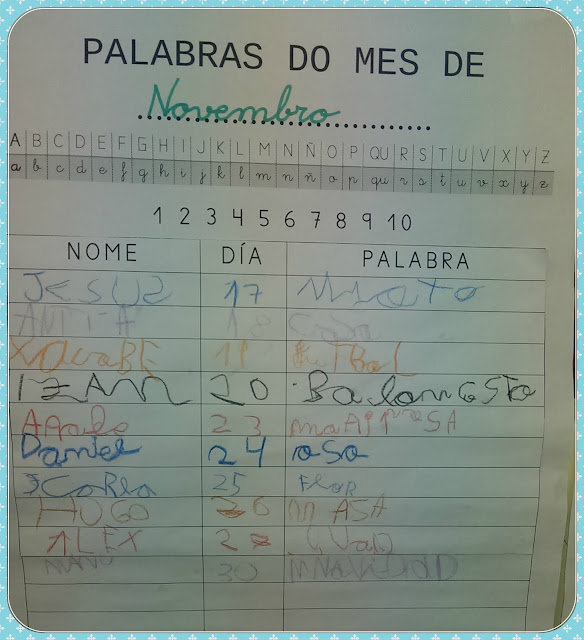 PALABRAS DO MES DE
Novembro
A B C D E F G H I J K L M N Ñ O P QU R S T U V X Y Z
a b c d e f g h i j k l m n ñ o p qu r s t u v x y z
1 2 3 4 5 6 7 8 9 10
NOME DÍA PALABRA
JESUS 17
18
19 FUTBOL
IZAN 20 Baloncesto
23
Daniel 24 oso
CARLA 25 FLOR
HUGO 26 MASA
ALEX
MANU 30